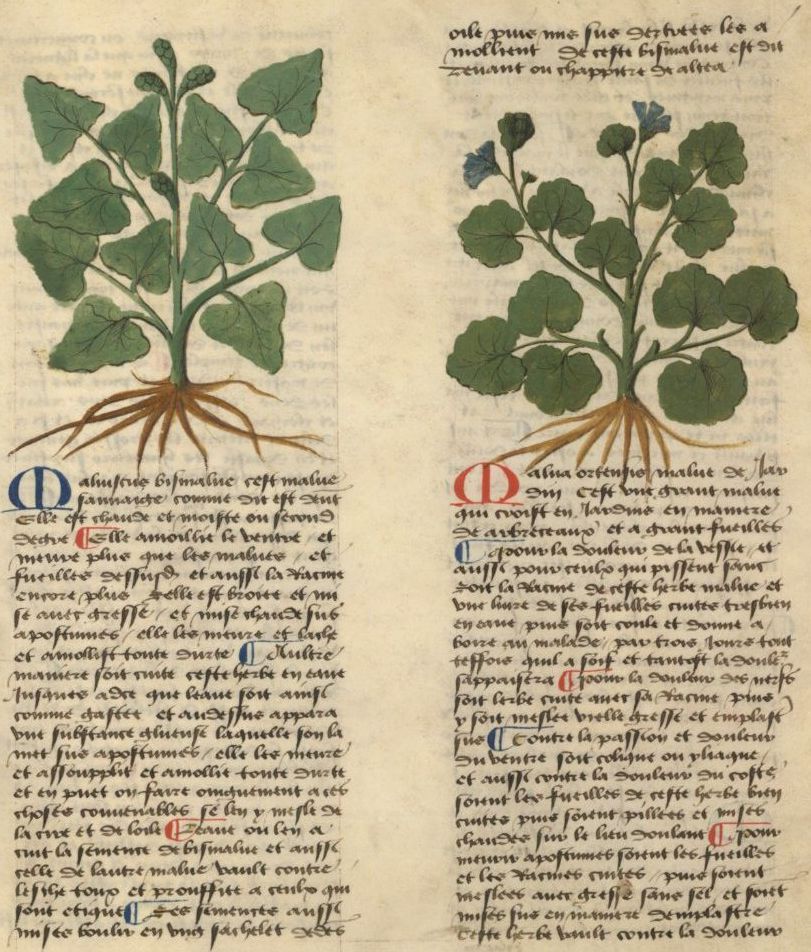 Maluiscus bismalue cest malue
sauuaige comme dit est deuant
Elle est chaude et moiste ou second
degre Elle amoillie le ventre et
meure plus que les malues et
fueilles dessusd et aussi la Racine
encore plus selle est broiee et mi
se auec gresse et mise chaude sus
apostumes elle les meure et lache
et amollist toute durte Aultre
maniere soit cuite ceste herbe en eaue
Jusques adce que leaue soit ainsi
comme gastee et audessus appara
vne substance glueuse laquelle son la
met sus apostumes elle les meure
et assoupplit et amollie toute durte
et en puet on faire oinguement a ces
choses conuenables se len y mesle de
la cire et de loile Leaue ou len a
cuit la semence de bismalue et aussi
celle de lautre malue vault contre
lesche toux et prouffite a ceulx qui
sont etiques Les semences aussi
mises boulir en vng sachelet dedes
oile puis mis sus dertrees les a
mollient de ceste bismalue est dit
deuant ou chappitre de altea
Malua ortensis malue de Jar
din Cest vne grant malue
qui croist en Jardins en maniere
de arbreceaux et a grant fueilles
pour la douleur de la vessie et
aussi pour ceulx qui pissent sanc
soit la Racine de ceste herbe malue et
vne liure de ses fueilles cuites tresbien
en eaue puis soit coule et donne a
boire au malade par trois Jours tout
teffois quil a soif et tantost la douler
sappaisera pour la douleur des nerfs
soit lerbe cuite auec sa Racine puis
y soit meslee vielle gresse et emplast
sus Contre la passion et douleur
du ventre soit colique ou yliaque
et aussi contre la douleur du coste
soient les fueilles de ceste herbe bien
cuites puis soient pillees et mises
chaudes sur le lieu doulant pour
meurir apostumes soient les fueilles
et les Racines cuites puis soient
meslees auec gresse sans sel et soiet
mises sus en maniere demplastre
Ceste herbe vault contre la douleur